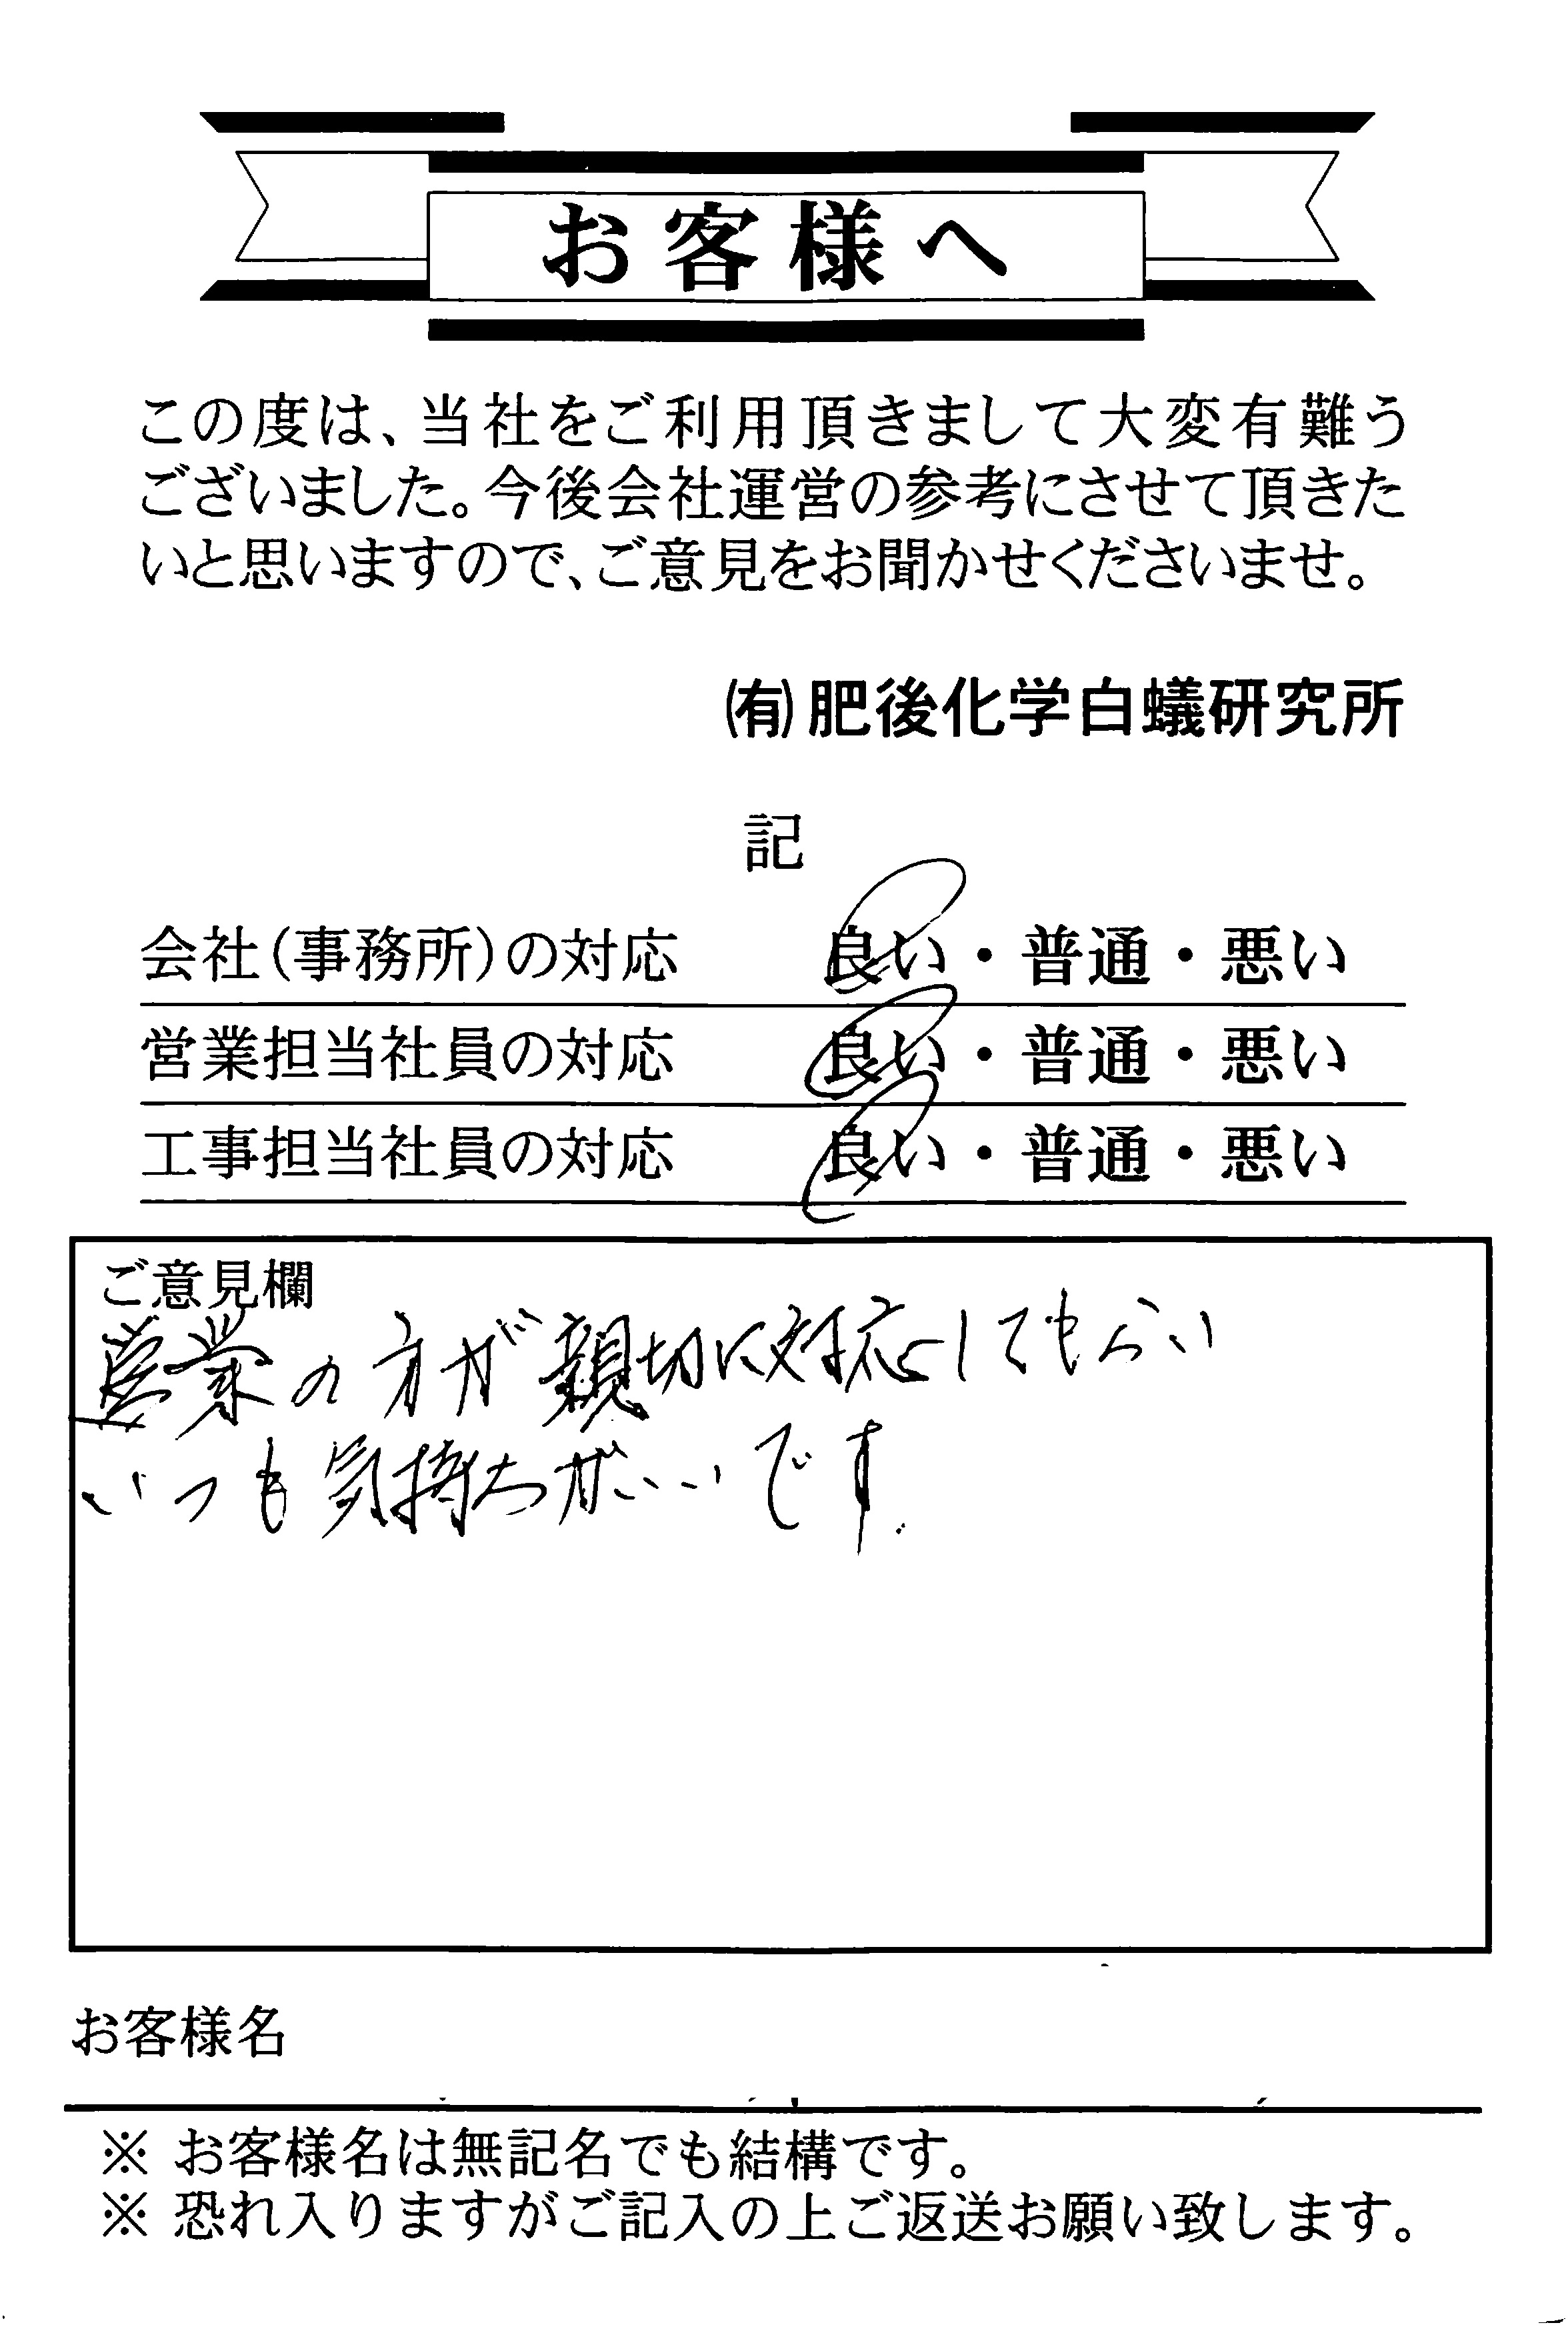 お客様へ
この度は、当社をご利用頂きまして大変有難う
ございました。今後会社運営の参考にさせて頂きた
いと思いますので、ご意見をお聞かせくださいませ。
㈲肥後化学白蟻研究所
記
会社(事務所)の対応 良い・普通・悪い
営業担当社員の対応 良い・普通・悪い
工事担当社員の対応 良い・普通・悪い
ご意見欄
営業の方が親切に対応してもらい
いつも気持ちがいいです.
お客様名
※ お客様名は無記名でも結構です。
※ 恐れ入りますがご記入の上ご返送お願い致します。